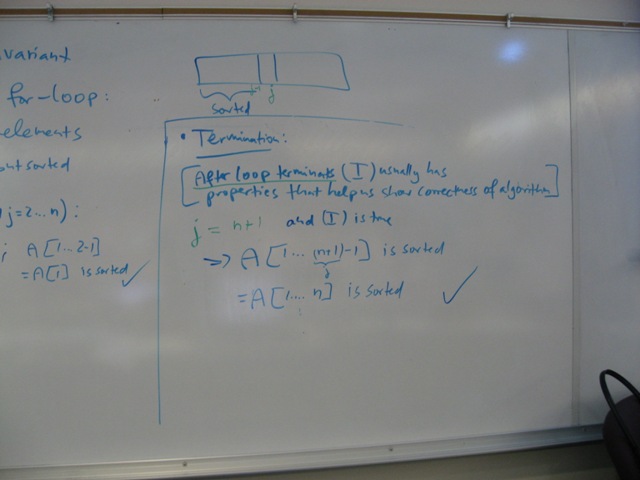 variant
for-loop:
elements
but sorted
j=2...n):
A[1...2-1]
=A[1] is sorted ✓
j
sorted
• Termination:
[After loop terminates (I) usually has
properties that help us show correctness of algorithm]
j = n+1 and (I) is true
=> A[1... (n+1)-1] is sorted
j
=A[1.... n] is sorted ✓